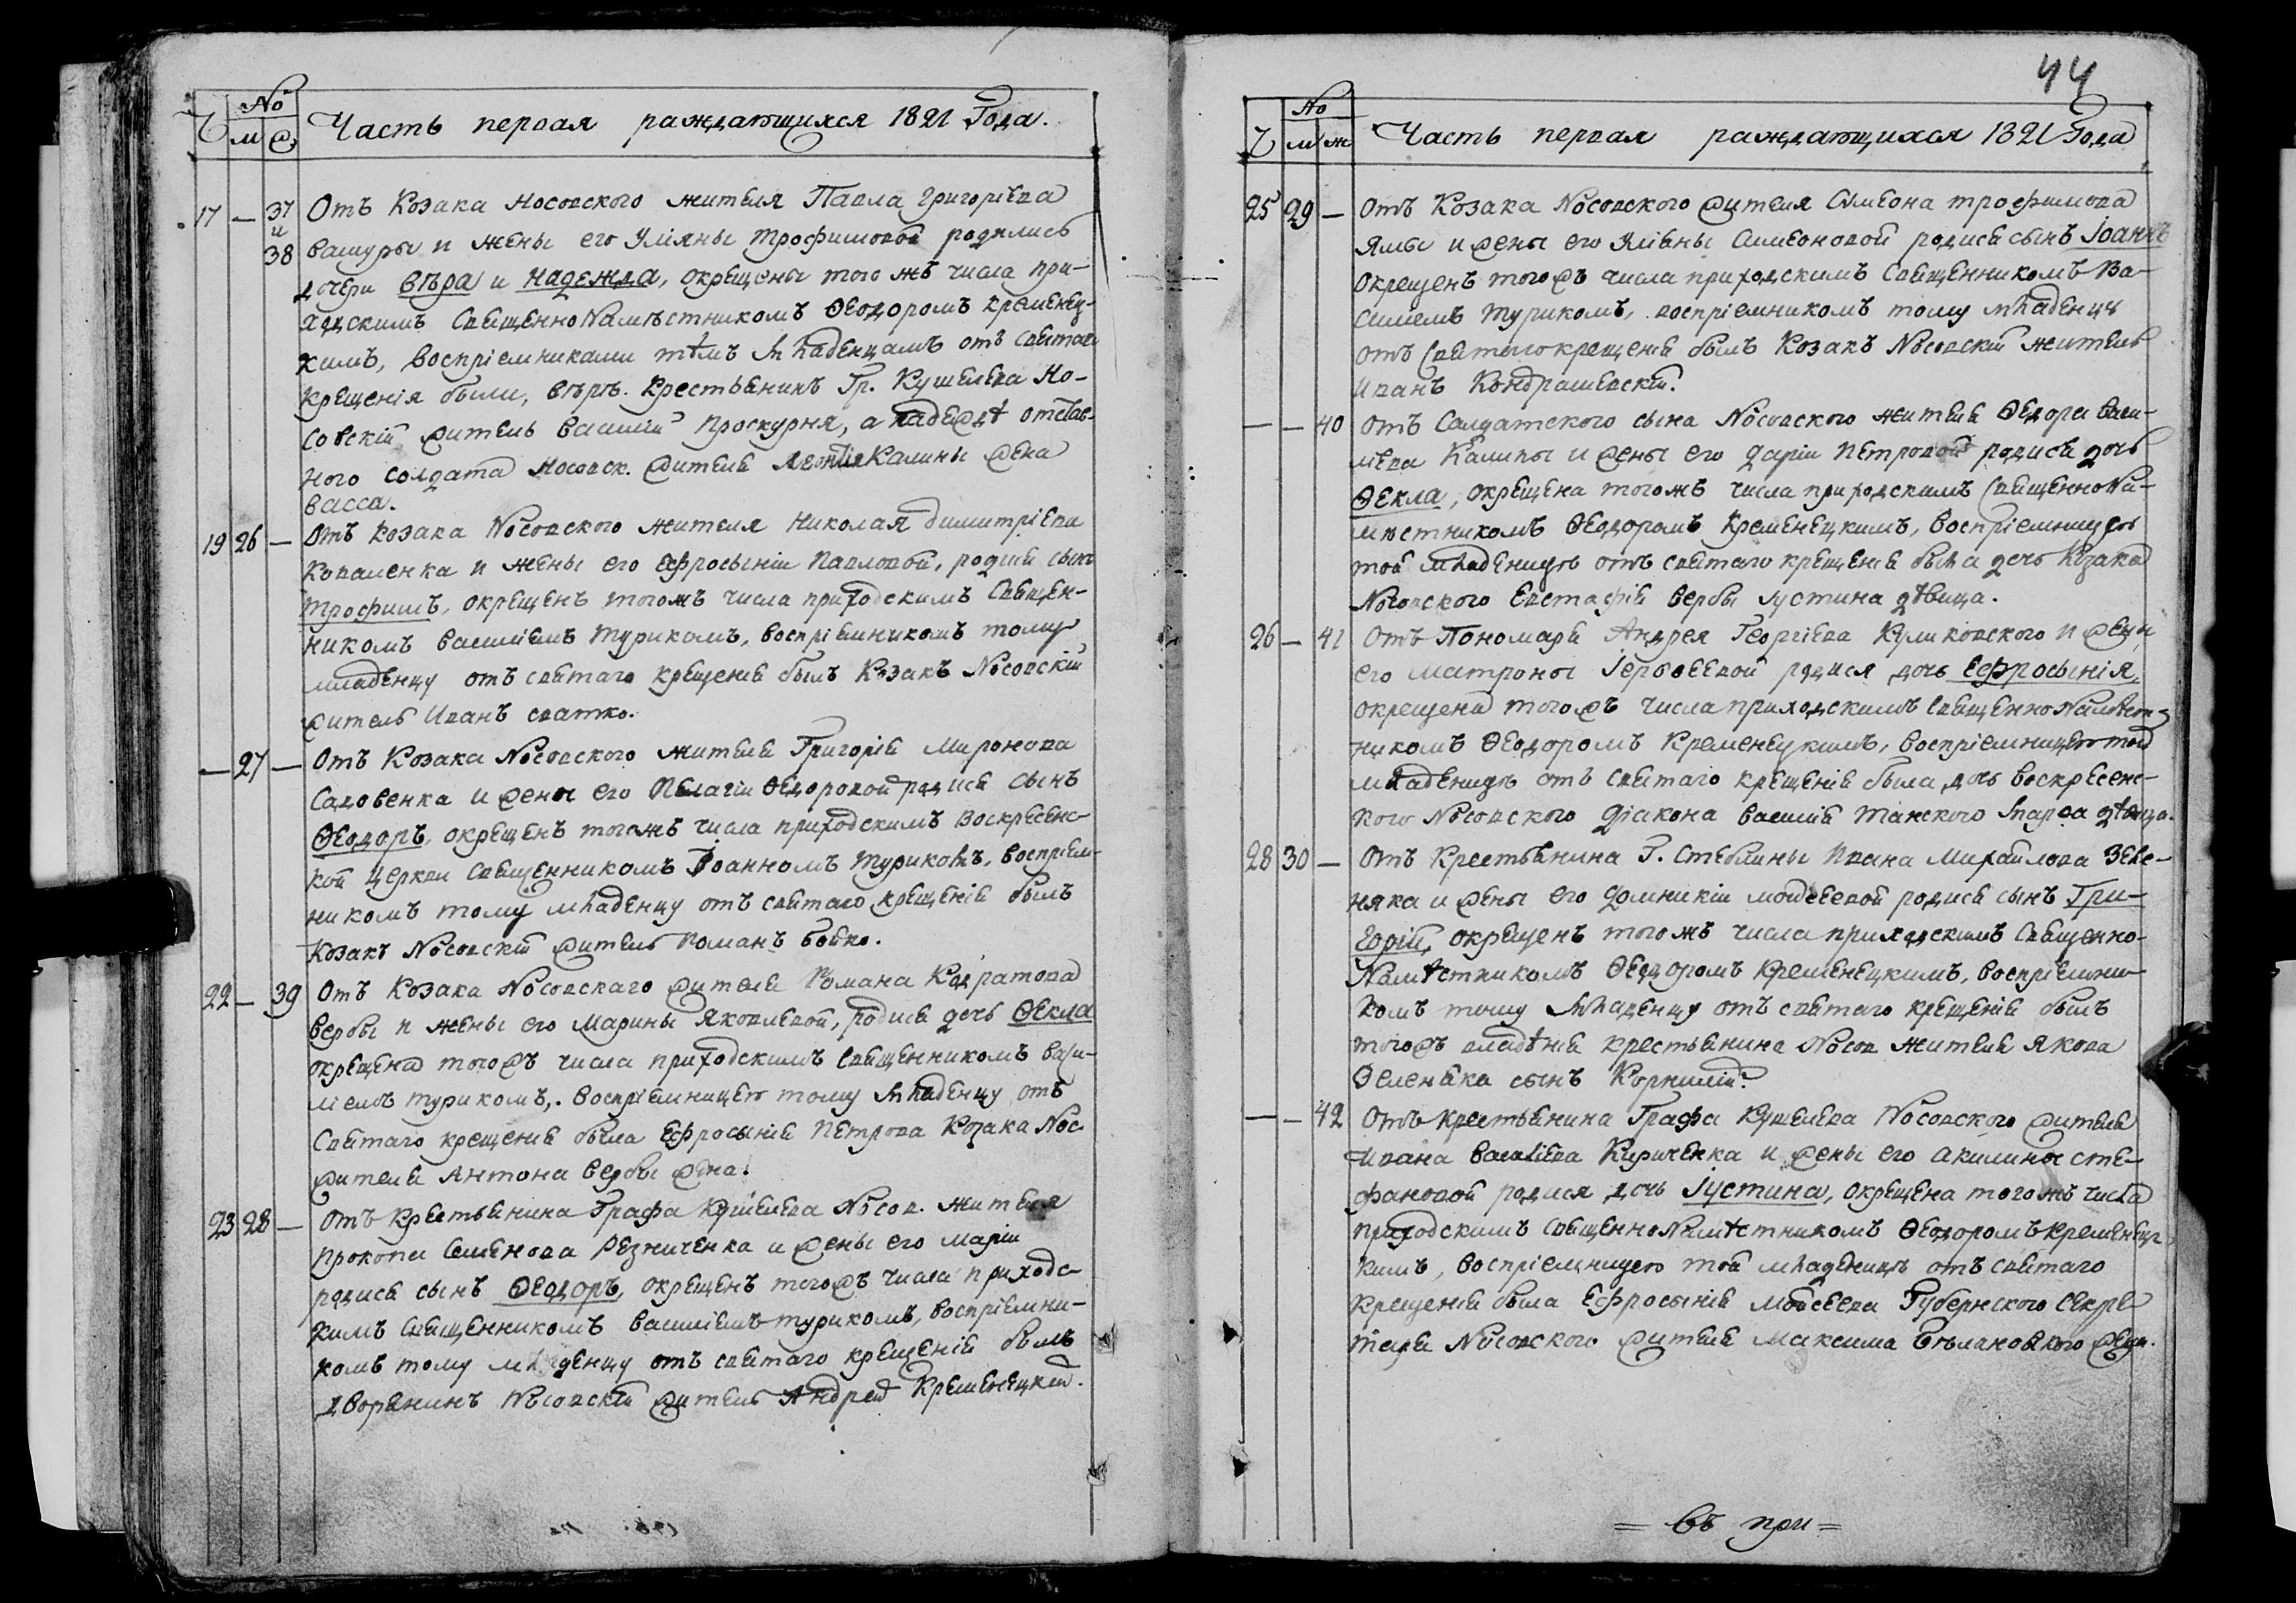 Ч № м ж Часть первая раждающихся 1821 Года.
17 — 37 и 38 Отъ Козака Носовского жителя Павла Григоріева
Вашуры и жены его Уліяны Трофимовой родились
дочери Вѣра и Надежда, окрещены того жъ числа при-
ходскимъ Священнонамѣстникомъ Ѳеодоромъ Кременец-
кимъ, воспріемниками тѣмъ младенцамъ отъ святаго
крещенія были, Вѣрѣ. Крестьянинъ Гр. Кушелева Но-
совскій житель Василій Проскурня, а Надеждѣ отстав-
ного солдата Носовск. жителя Леонтія Калины жена
Васса.
19 26 — Отъ Козака Носовского жителя Николая Димитріева
Коваленка и жены его Ефросыніи Павловой, родися сынъ
Трофимъ, окрещенъ тогожъ числа приходскимъ Священ-
никомъ Василіемъ Турикомъ, воспріемникомъ тому
младенцу отъ святаго крещенія былъ Козакъ Носовскій
житель Иванъ Сватко.
— 27 — Отъ Козака Носовского жителя Григорія Миронова
Садовенка и жены его Пелагіи Ѳедоровой родися сынъ
Ѳеодоръ, окрещенъ тогожъ числа приходскимъ Воскресенс-
кой церкви Священникомъ Іоанномъ Турикомъ, воспріем-
никомъ тому младенцу отъ святаго крещенія былъ
Козакъ Носовскій житель Романъ Бойко.
22 — 39 Отъ Козака Носовскаго жителя Романа Кодратова
Вербы и жены его Марины Яковлевой, родися дочь Ѳекла
окрещена тогожъ числа приходскимъ Священникомъ Васи-
ліемъ Турикомъ, воспріемницею тому младенцу отъ
Святаго крещенія была Ефросынія Петрова Козака Нос
жителя Антона Вербы жена.
23 28 — Отъ Крестьянина Графа Кушелева Носов. жителя
Прокопи Семенова Резниченка и жены его Маріи
родися сынъ Ѳеодоръ, окрещенъ тогожъ числа приходс-
кимъ Священникомъ Василіемъ Турикомъ, воспріемни-
комъ тому младенцу отъ святаго крещенія былъ
дворянинъ Носовскій житель Андрей Кременецкій.
44
Ч № м ж Часть первая раждающихся 1821 Года
25 29 — Отъ Козака Носовского жителя Симеона Трофимова
Ямы и жены его Уліяны Симеоновой родися сынъ Іоаннъ
окрещенъ тогожъ числа приходскимъ Священникомъ Ва-
силіемъ Турикомъ, воспріемникомъ тому младенцу
отъ Святаго крещенія былъ Козакъ Носовскій житель
Иванъ Кондрашевскій.
— — 40 Отъ Салдатского сына Носовского жителя Ѳедора Васи-
ліева Калины и жены его Даріи Петровой родися дочь
Ѳекла, окрещена тогожъ числа приходскимъ Священнона-
мѣстникомъ Ѳеодоромъ Кременецкимъ, воспріемницею
той младеницѣ отъ святаго крещенія была дочь Козака
Носовского Евстафія Вербы Іустина дѣвица.
26 — 41 Отъ Пономаря Андрея Георгіева Куликовского и жены
его Матроны Іерофеевой родися дочь Ефросынія,
окрещена тогожъ числа приходскимъ Священнонамѣст-
никомъ Ѳеодоромъ Кременецкимъ, воспріемницею той
младеницѣ отъ святаго крещенія была дочь Воскресенс-
кого Носовского Діакона Василія Танского Марѳа дѣвица.
28 30 — Отъ Крестьянина Г. Стеблины Ивана Михайлова Зеле-
няка и жены его Домникіи Моисеевой родися сынъ Гри-
горій, окрещенъ тогожъ числа приходскимъ Священно-
намѣстникомъ Ѳеодоромъ Кременецкимъ, воспріемни-
комъ тому младенцу отъ святаго крещенія былъ
тогожъ владѣнія крестьянина Носов жителя Якова
Зеленяка сынъ Корнилій.
— — 42 Отъ Крестьянина Графа Кушелева Носовского жителя
Ивана Василіева Кириченка и жены его Акилины Сте-
фановой родися дочь Іустина, окрещена тогожъ числа
приходскимъ Священнонамѣстникомъ Ѳеодоромъ Кременец-
кимъ, воспріемницею той младеницѣ отъ святаго
крещенія была Ефросынія Моисеева Губернского Секре-
таря Носовского жителя Максима Бѣлановского жена.
= въ при =